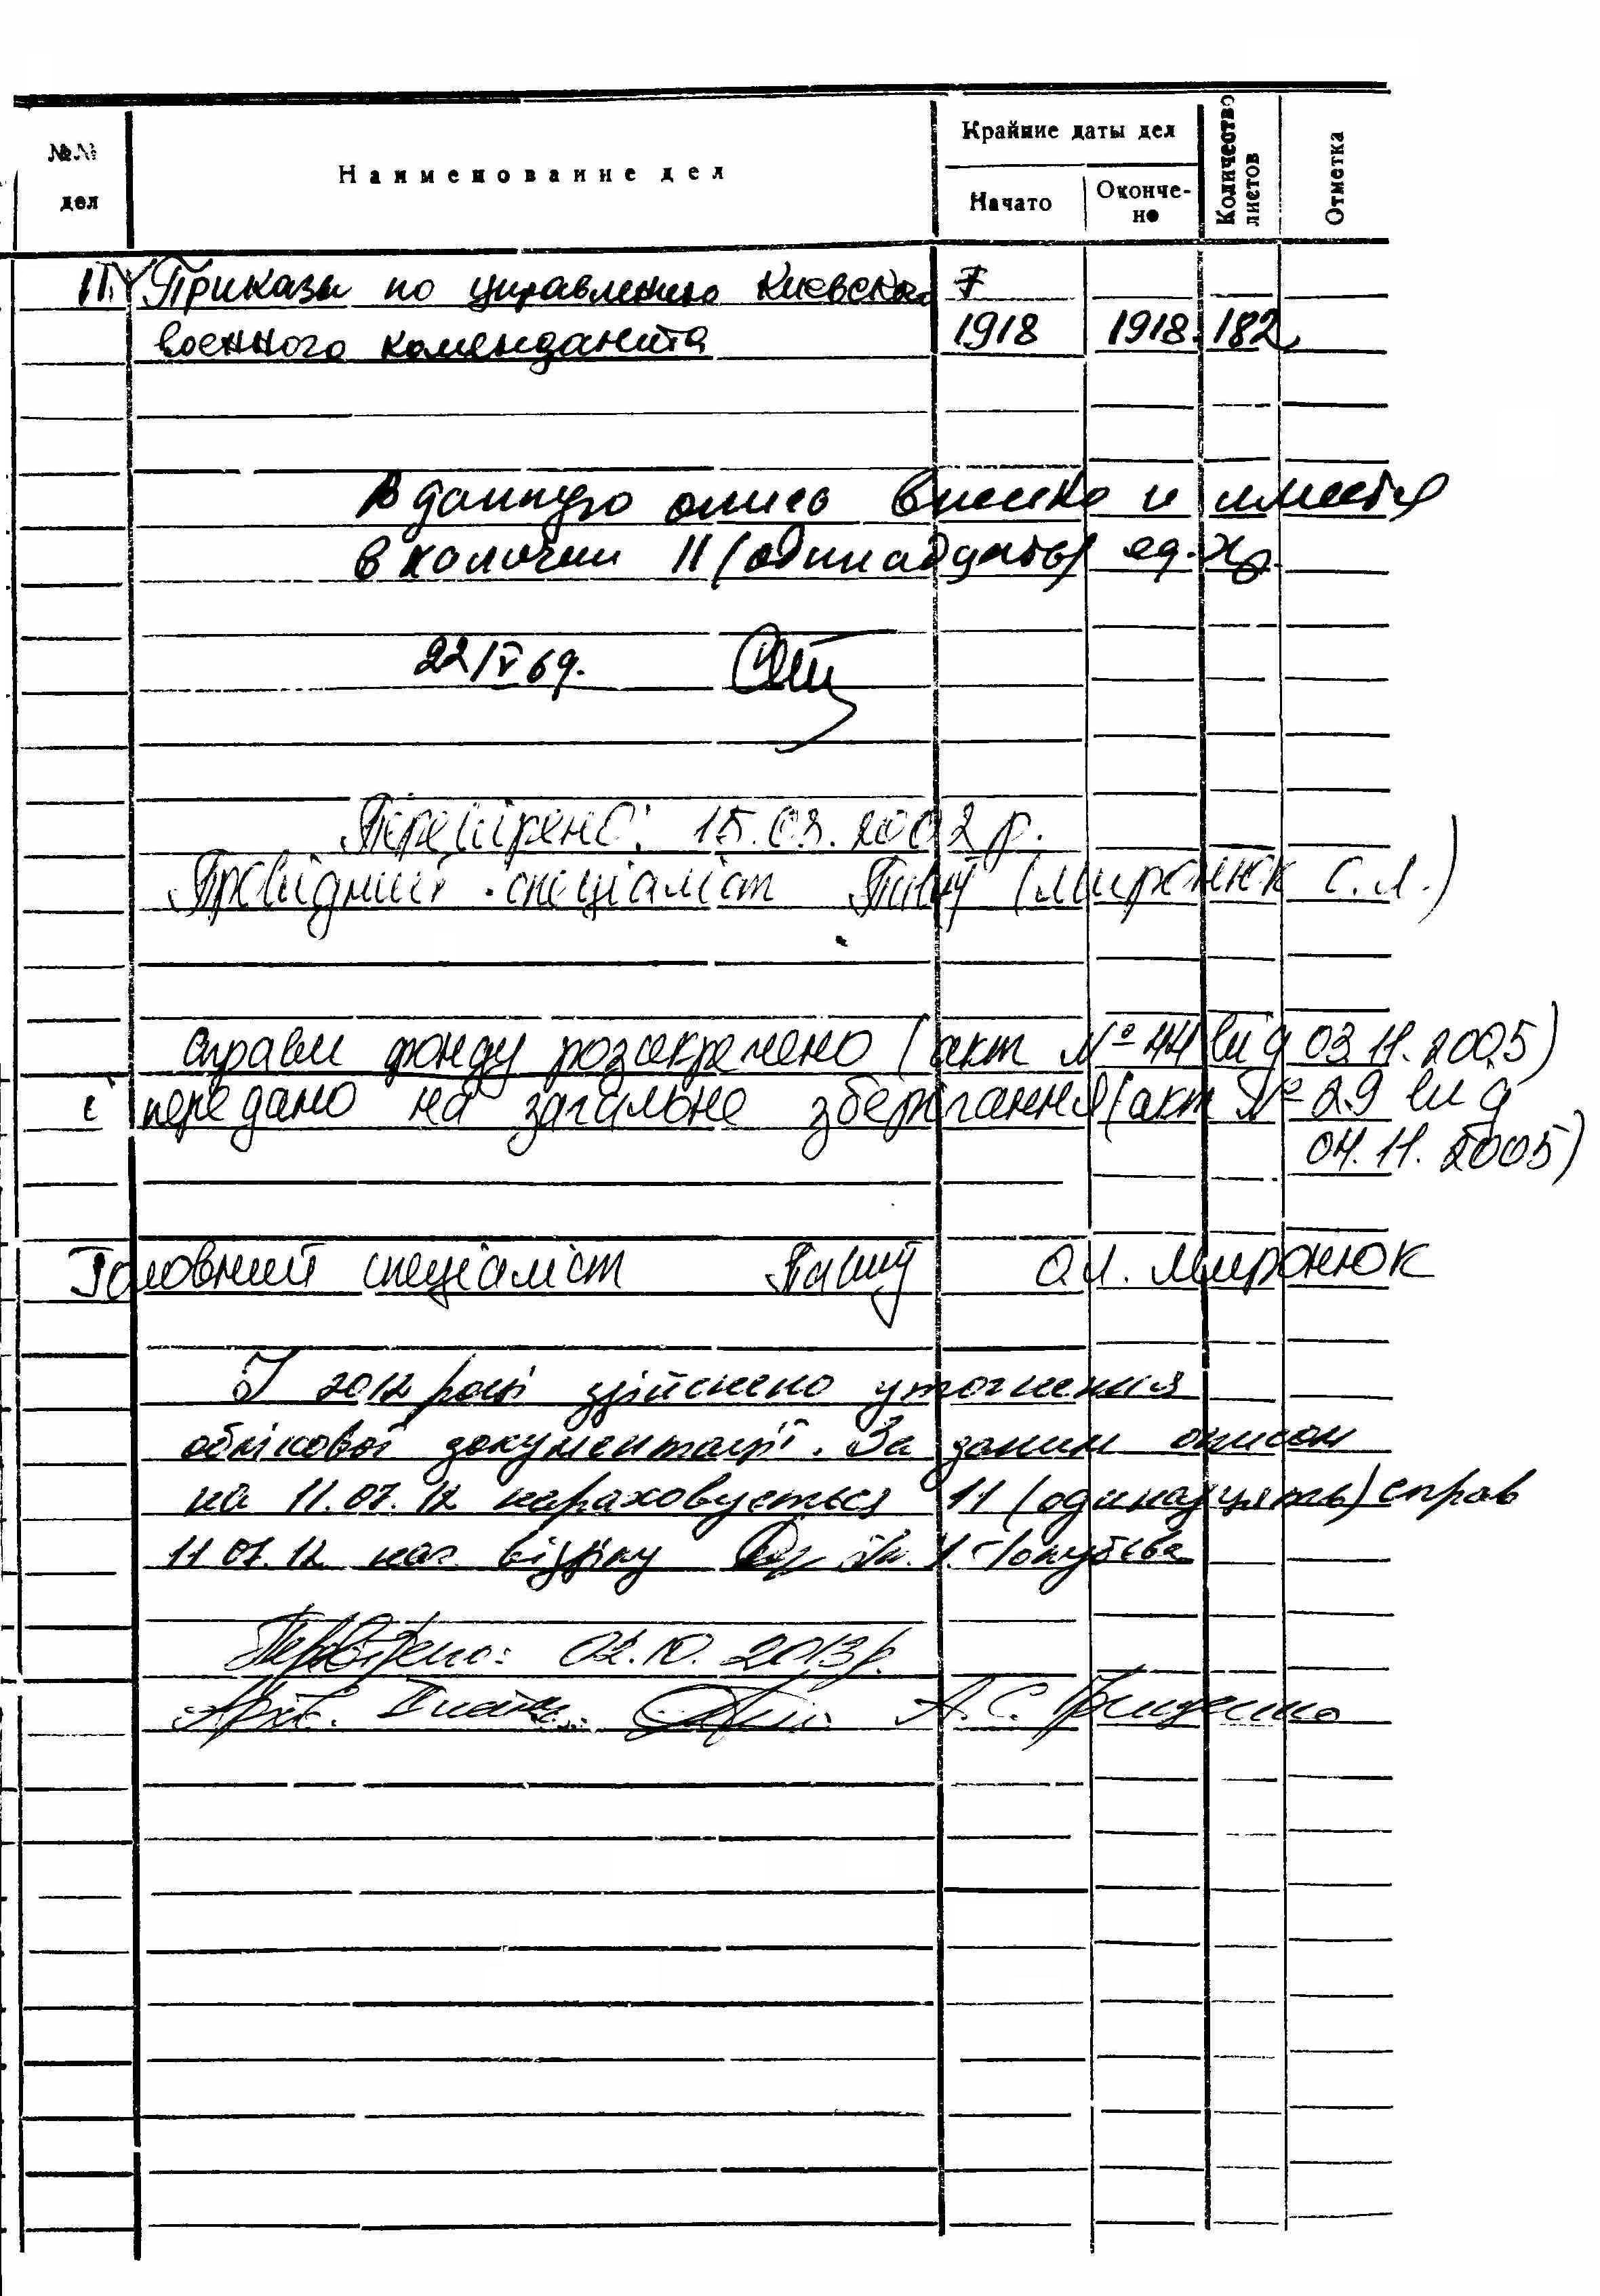 №№ дел
Наименование дел
Крайние даты дел
Начато
Окончено
Количество листов
Отметка
11. Приказы по управлению Киевского 7
военного коменданта 1918 1918. 182
В данную опись внесено и имеется
в количии 11 (одиннадцать) ед. хр.
22/V 69.
Перевірено: 15.03.2002 р.
Провідний спеціаліст (Миронюк О.Л.)
Справи фонду розсекречено (акт № 44 від 03.11.2005)
і передано на загальне зберігання (акт № 29 від
04.11.2005)
Головний спеціаліст О.Л. Миронюк
У 2012 році здійснено уточнення
облікової документації. За даним описом
на 11.07.12 нараховується 11 (одинадцять) справ
11.07.12 нач. відділу
Перевірено: 02.10.2013 р.
Архів. І катег. А.С. Грищенко